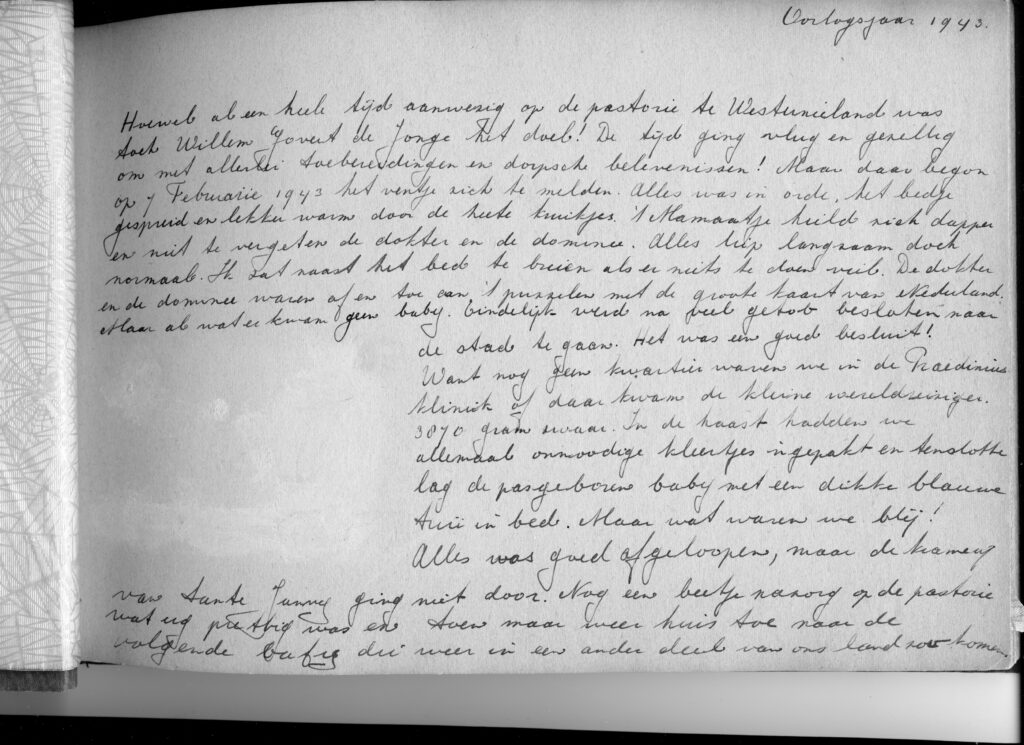 Oorlogsjaar 1943.
Hoewel al een heele tijd aanwezig op de pastorie te Westernieland was
toch Willem Govert de Jonge het doel! De tijd ging vlug en gezellig
om met allerlei toebereidingen en dorpsche belevenissen! Maar daar begon
op 7 Februarie 1943 het ventje zich te melden. Alles was in orde, het bedje
gespreid en lekker warm door de heete kruikjes. 't Mamaatje hield zich dapper
en niet te vergeten de dokter en de dominee. Alles liep langzaam doch
normaal. Ik zat naast het bed te breien als er niets te doen viel. De dokter
en de dominee waren af en toe aan 't puzzelen met de groote kaart van Nederland.
Maar al wat er kwam geen baby. Eindelijk werd na veel getob besloten naar
de stad te gaan. Het was een goed besluit!
Want nog geen kwartier waren we in de Praedinius
kliniek of daar kwam de kleine wereldreiziger.
3870 gram zwaar. In de haast hadden we
allemaal onnoodige kleertjes ingepakt en tenslotte
lag de pasgeboren baby met een dikke blauwe
trui in bed. Maar wat waren we blij!
Alles was goed afgeloopen, maar de kraamerij
van tante Janny ging niet door. Nog een beetje nazorg op de pastorie
wat erg prettig was en toen maar weer huis toe naar de
volgende baby die weer in een ander deel van ons land zou komen.